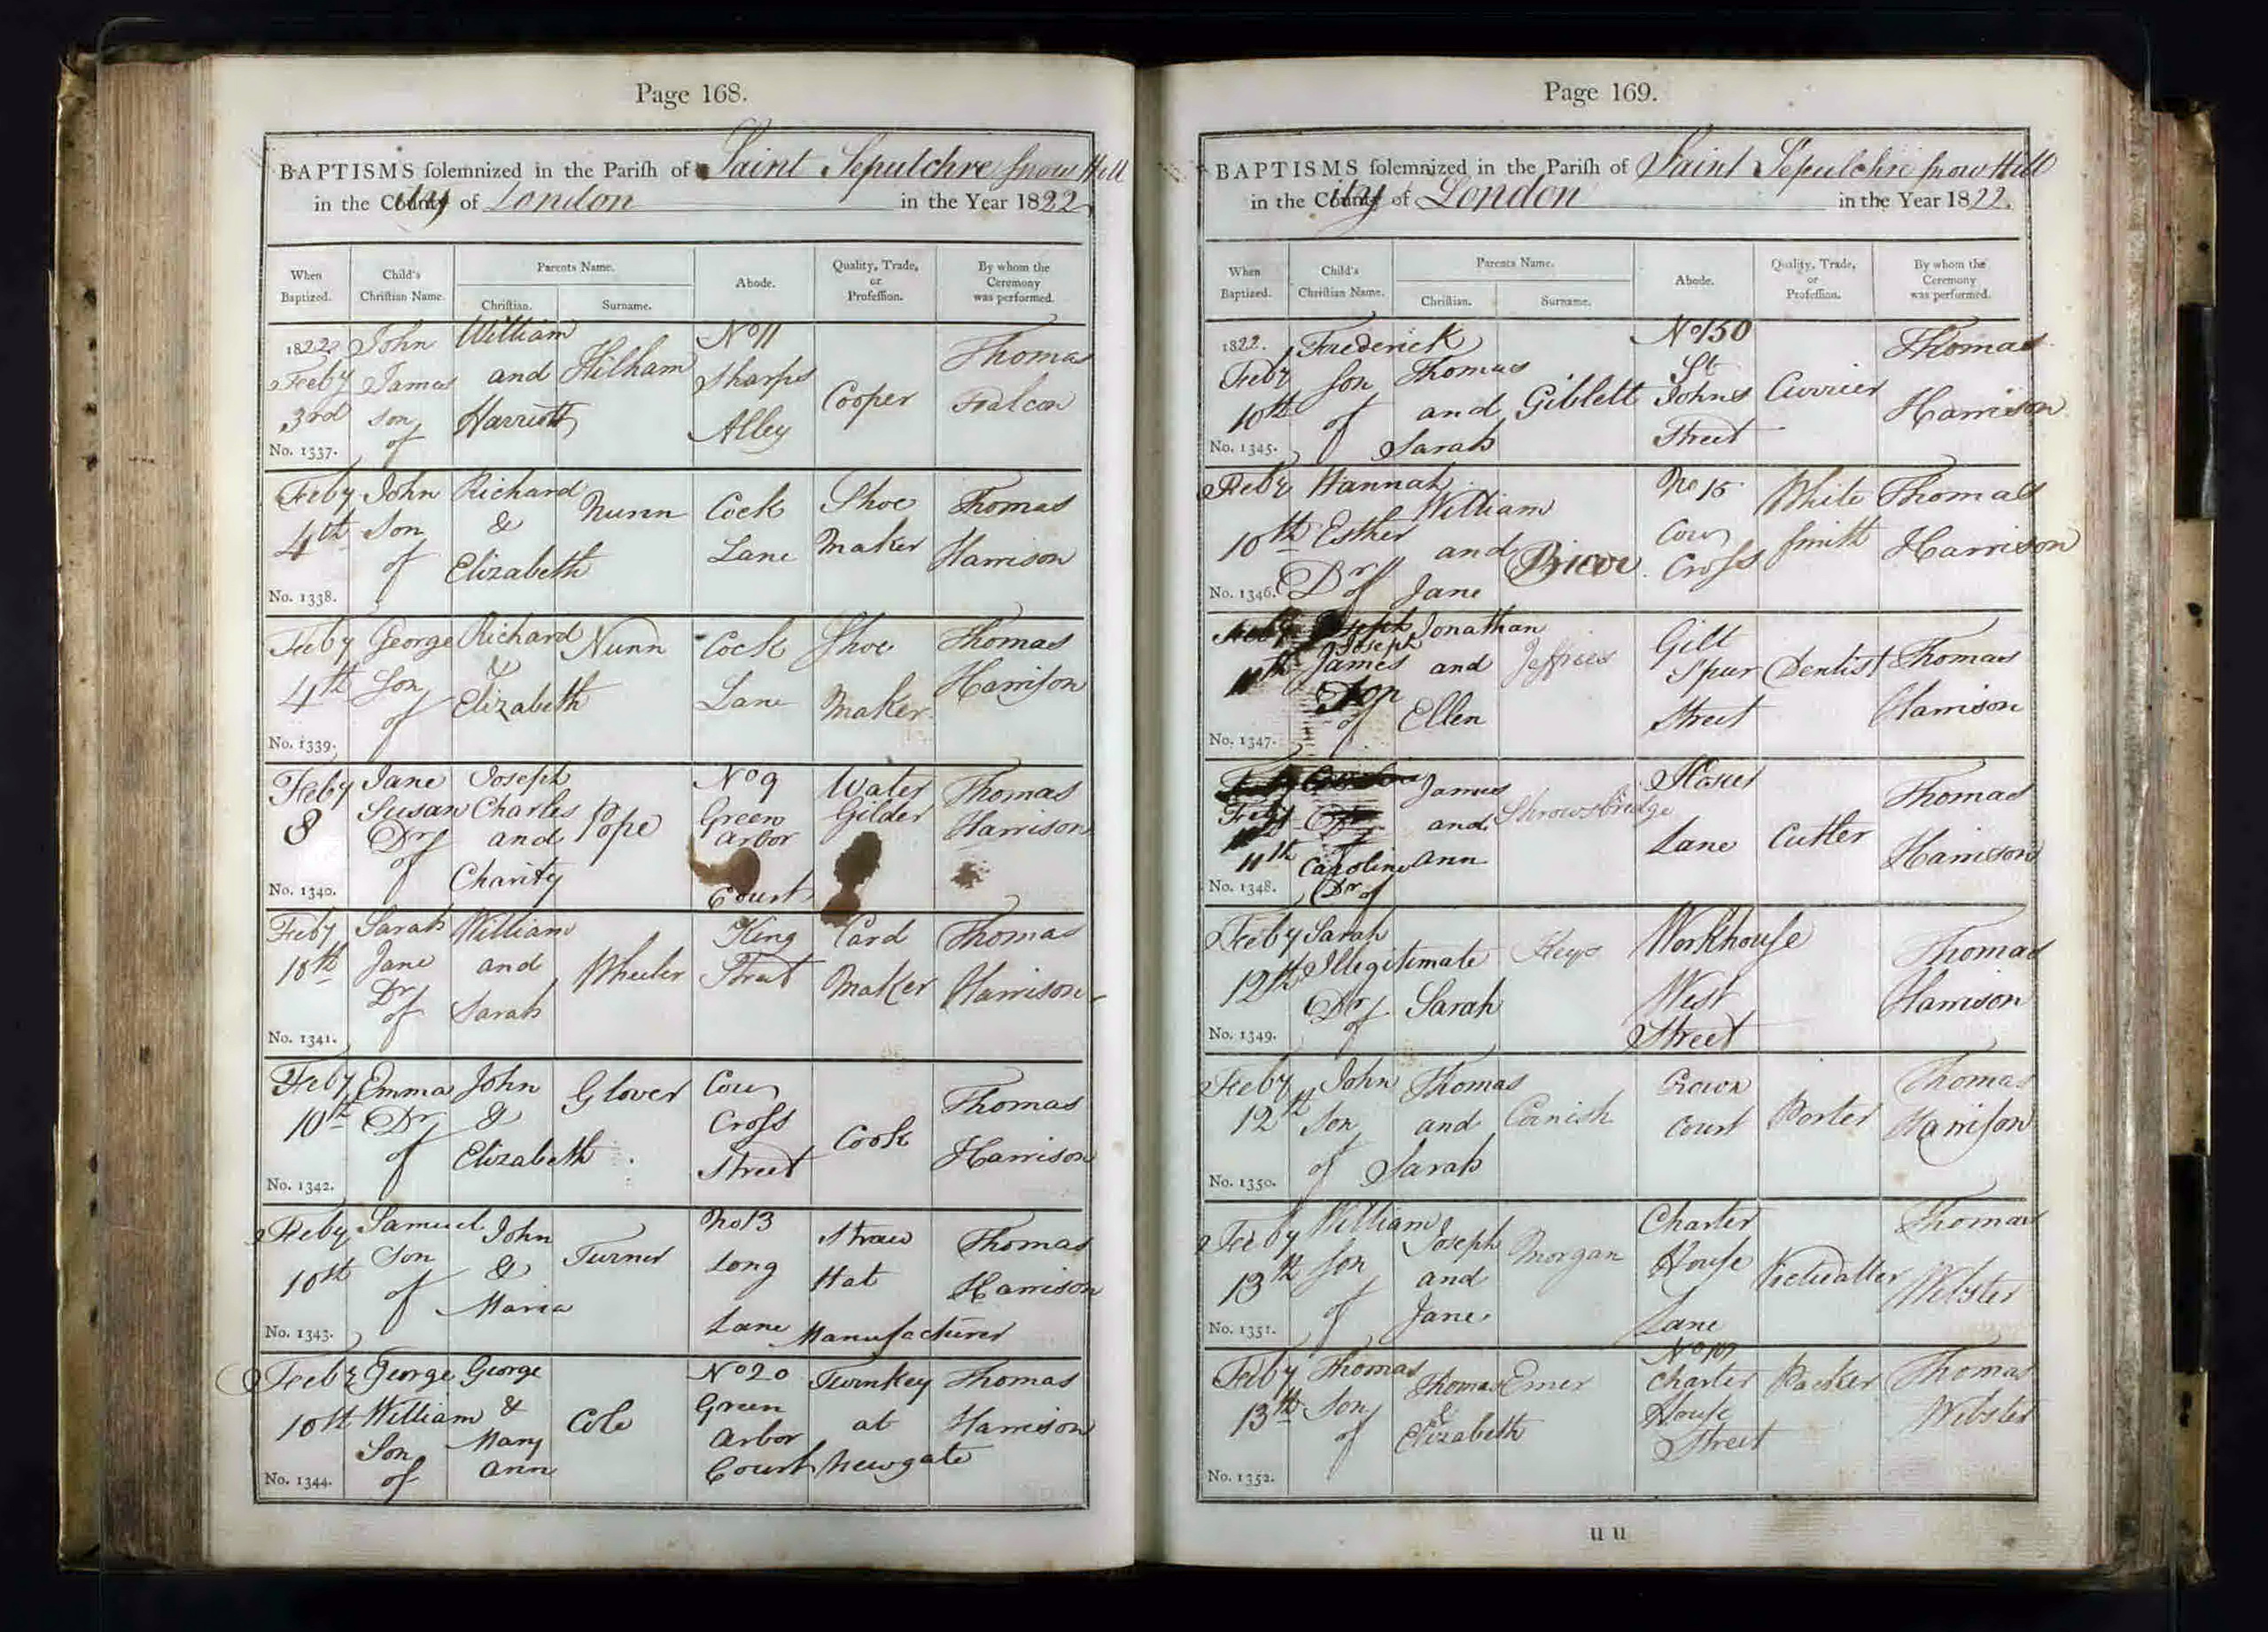 Page 168.
BAPTISMS solemnized in the Parish of Saint Sepulchre Snow Hill
in the City of London in the Year 1822
When Baptized.
Child's Christian Name.
Parents Name.
Christian.
Surname.
Abode.
Quality, Trade, or Profession.
By whom the Ceremony was performed.
1822
Feby
3rd
No. 1337.
John
James
son
of
William
and
Harriott
Hilham
No 11
Sharps
Alley
Cooper
Thomas
Feby
4th
No. 1338.
John
Son
of
Richard
&
Elizabeth
Nunn
Cock
Lane
Shoe
Maker
Thomas
Harrison
Feby
4th
No. 1339.
George
Son
of
Richard
&
Elizabeth
Nunn
Cock
Lane
Shoe
Maker
Thomas
Harrison
Feby
8
No. 1340.
Jane
Susan
Dr
of
Joseph
Charles
and
Charity
Pope
No 9
Green
Arbor
Court
Water
Gilder
Thomas
Harrison
Feby
10th
No. 1341.
Sarah
Jane
Dr
of
William
and
Sarah
Wheeler
King
Street
Card
Maker
Thomas
Harrison
Feby
10th
No. 1342.
Emma
Dr
of
John
&
Elizabeth
Glover
Cow
Cross
Street
Cook
Thomas
Harrison
Feby
10th
No. 1343.
Samuel
Son
of
John
&
Maria
Turner
No 13
Long
Lane
Straw
Hat
Manufacturer
Thomas
Harrison
Feby
10th
No. 1344.
George
William
Son
of
George
&
Mary
Ann
Cole
No 20
Green
Arbor
Court
Turnkey
at
Newgate
Thomas
Harrison
Page 169.
BAPTISMS solemnized in the Parish of Saint Sepulchre Snow Hill
in the City of London in the Year 1822.
When Baptized.
Child's Christian Name.
Parents Name.
Christian.
Surname.
Abode.
Quality, Trade, or Profession.
By whom the Ceremony was performed.
1822.
Feby
10th
No. 1345.
Frederick
Son
of
Thomas
and
Sarah
Giblett
No 150
St
Johns
Street
Currier
Thomas
Harrison
Feby
10th
No. 1346.
Hannah
Esther
Dr of
William
and
Jane
No 15
Cow
Cross
White
Smith
Thomas
Harrison
Feby
11th
No. 1347.
Joseph
James
Son
of
Jonathan
and
Ellen
Jeffries
Gilt
Spur
Street
Dentist
Thomas
Harrison
Feby
11th
No. 1348.
Caroline
Dr of
James
and
Ann
Shrowsbridge
Lane
Cutler
Thomas
Harrison
Feby
12th
No. 1349.
Sarah
Illegitimate
Dr
of
Sarah
Keys
Workhouse
West
Street
Thomas
Harrison
Feby
12th
No. 1350.
John
Son
of
Thomas
and
Sarah
Cornish
Crown
Court
Porter
Thomas
Harrison
Feby
13th
No. 1351.
William
Son
of
Joseph
and
Jane
Morgan
Charter
House
Lane
Victualler
Thomas
Webster
Feby
13th
No. 1352.
Thomas
Son
of
Thomas
&
Elizabeth
Emer
Charter
House
Street
Packer
Thomas
Webster
u u